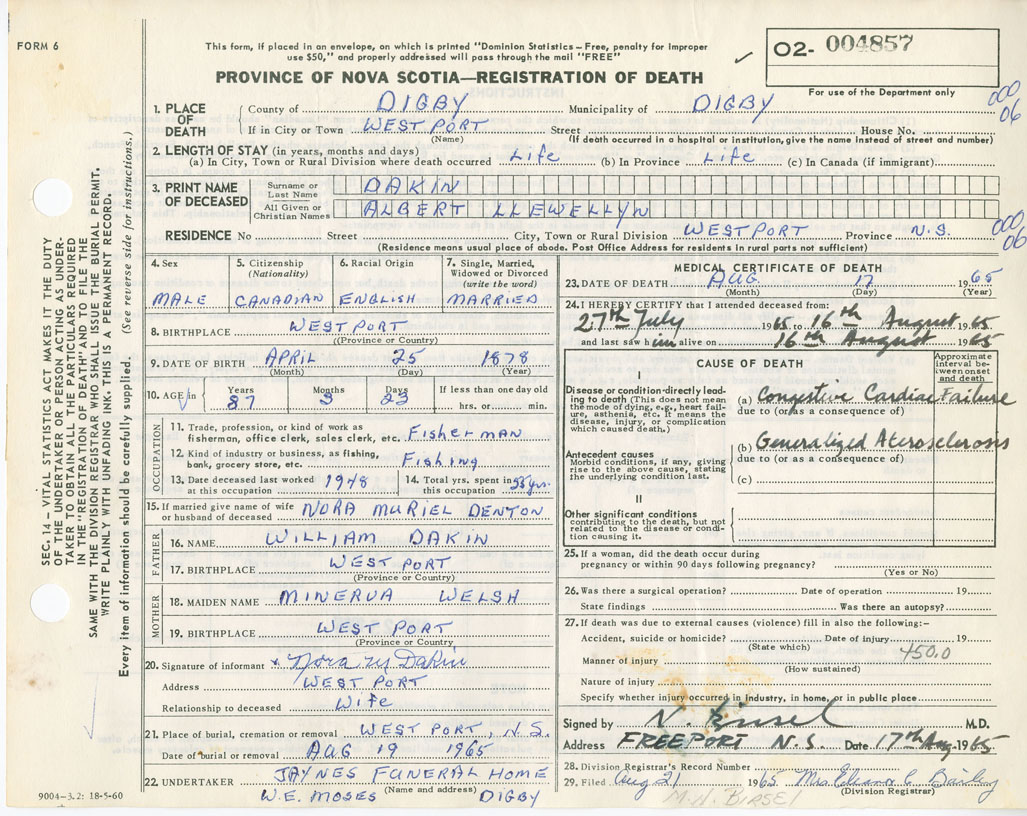 FORM 6
This form, if placed in an envelope, on which is printed "Dominion Statistics—Free, penalty for improper
use $50," and properly addressed will pass through the mail "FREE"
PROVINCE OF NOVA SCOTIA—REGISTRATION OF DEATH
02- 004857
For use of the Department only
000
06
1. PLACE OF DEATH
County of DIGBY Municipality of DIGBY
If in City or Town WESTPORT Street House No.
(Name) (If death occurred in a hospital or institution, give the name instead of street and number)
2. LENGTH OF STAY (in years, months and days)
(a) In City, Town or Rural Division where death occurred Life (b) In Province Life (c) In Canada (if immigrant)
3. PRINT NAME OF DECEASED
Surname or Last Name DAKIN
All Given or Christian Names ALBERT LLEWELLYN
000
06
RESIDENCE No Street City, Town or Rural Division WESTPORT Province N.S.
(Residence means usual place of abode. Post Office Address for residents in rural parts not sufficient)
4. Sex
MALE
5. Citizenship (Nationality)
CANADIAN
6. Racial Origin
ENGLISH
7. Single, Married, Widowed or Divorced (write the word)
MARRIED
8. BIRTHPLACE WESTPORT
(Province or Country)
9. DATE OF BIRTH APRIL 25 1878
(Month) (Day) (Year)
10. AGE in Years 87 Months 3 Days 23 If less than one day old
hrs. or min.
OCCUPATION
11. Trade, profession, or kind of work as
fisherman, office clerk, sales clerk, etc. FisherMAN
12. Kind of industry or business, as fishing,
bank, grocery store, etc. Fishing
13. Date deceased last worked at this occupation 1948
14. Total yrs. spent in this occupation 55 yrs.
15. If married give name of wife
or husband of deceased NORA MURIEL DENTON
FATHER
16. NAME WILLIAM DAKIN
17. BIRTHPLACE WEST PORT
(Province or Country)
MOTHER
18. MAIDEN NAME MINERVA WELSH
19. BIRTHPLACE WEST PORT
(Province or Country)
20. Signature of informant x Nora M Dakin
Address WEST PORT
Relationship to deceased Wife
21. Place of burial, cremation or removal WEST PORT, N.S.
Date of burial or removal AUG 19 1965
22. UNDERTAKER JAYNES FUNERAL HOME
(Name and address)
W.E. MOSES DIGBY
MEDICAL CERTIFICATE OF DEATH
23. DATE OF DEATH AUG 17 1965
(Month) (Day) (Year)
24. I HEREBY CERTIFY that I attended deceased from:
27th July 1965 to 16th August 1965
and last saw him alive on 16th August 1965
CAUSE OF DEATH
Approximate interval between onset and death
I
Disease or condition directly leading
to death (This does not mean
the mode of dying, e.g., heart failure,
asthenia, etc. It means the
disease, injury, or complication
which caused death.)
(a) Congestive Cardiac Failure
due to (or as a consequence of)
Antecedent causes
Morbid conditions, if any, giving
rise to the above cause, stating
the underlying condition last.
(b) Generalized Aterosclerosis
due to (or as a consequence of)
(c)
II
Other significant conditions
contributing to the death, but not
related to the disease or condition
causing it.
25. If a woman, did the death occur during
pregnancy or within 90 days following pregnancy?
(Yes or No)
26. Was there a surgical operation? Date of operation 19
State findings Was there an autopsy?
27. If death was due to external causes (violence) fill in also the following:—
Accident, suicide or homicide? Date of injury 19
(State which) 450.0
Manner of injury
(How sustained)
Nature of injury
Specify whether injury occurred in industry, in home, or in public place
Signed by N. Birsel M.D.
Address FREEPORT N.S. Date 17th Aug 1965
28. Division Registrar's Record Number
29. Filed Aug 21 1965 Mrs C. Bailey
(Division Registrar)
M.N. BIRSEL
SEC. 14—VITAL STATISTICS ACT MAKES IT THE DUTY
OF THE UNDERTAKER OR PERSON ACTING AS UNDERTAKER
TO OBTAIN ALL THE PARTICULARS REQUIRED
IN THE "REGISTRATION OF DEATH" AND TO FILE THE
SAME WITH THE DIVISION REGISTRAR WHO SHALL ISSUE THE BURIAL PERMIT.
WRITE PLAINLY WITH UNFADING INK. THIS IS A PERMANENT RECORD.
Every item of information should be carefully supplied. (See reverse side for instructions.)
9004—3.2: 18-5-60